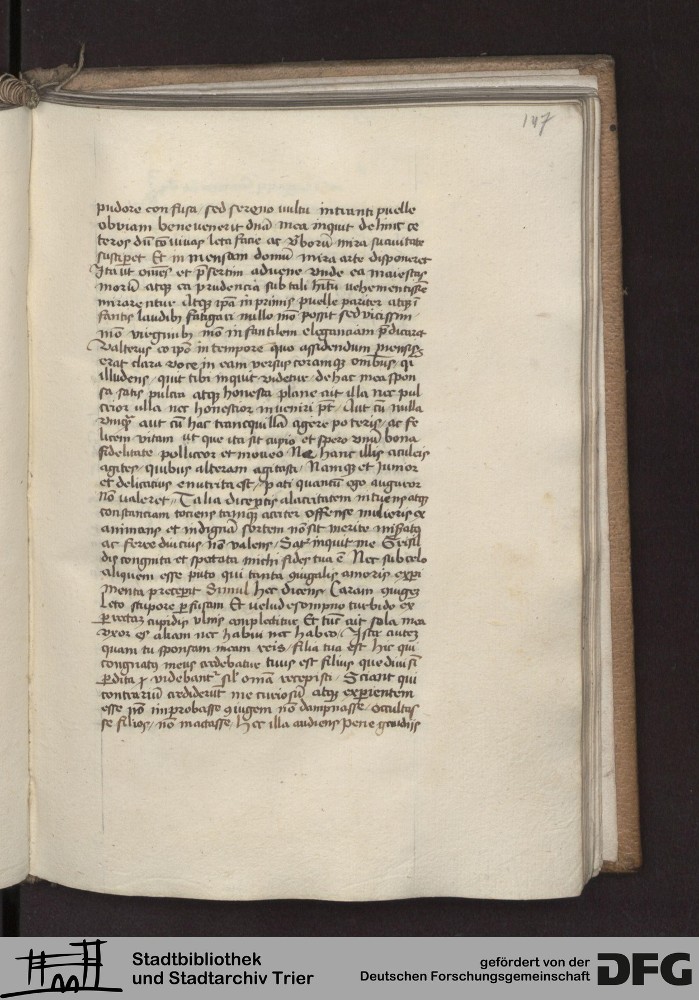 147
pudore confusa / sed sereno uultu intranti puelle
obviam benevenerit dn̄a mea inquit dehinc ce
teros dū cōvivas leta facie ac v̄borū mira suauitate
susciperet Et in mensam domū mira arte disponeret
Ita ut om̄es et p̄sertim advene unde ea maiestas
morū atqꝫ ea prudencia sub tali hītu vehementissīe
mirarentur Atqꝫ ip̄a in primis puelle pariter atqꝫ ī
fantis laudibꝫ fatigari nullo mō possit sed vicissim
mō virginibꝫ mō infantilem eleganciam p̄dicaret
Valterus eo ip̄o in tempore quo assidendum mensis
erat clara voce in eam versus coram omībus qͥ
illudens / quit tibi inquit videtur / de hac mea spon
sa satis pulcra atqꝫ honesta plane ait illa nec pul
crior ulla nec honestior inveniri pt̄ / Aut cū nulla
unqꝫ aut cū hac tranquillā agere poteris / ac fe
licem vitam ut que ita sit cupio et spero unū bona
fidelitate polliceor et moneo Ne hanc illis aculeis
agites / quibus alteram agitasti / Namqꝫ et iunior
et delicatius enutrita est / pati quantū ego auguror
nō valeret / Talia dicentis alacritatem intuens atqꝫ
constanciam tociens tamqꝫ acriter offense mulieris ex
animans et indignā sortem nō sit merite
ac ferre diucius nō valens / Satꝭ inquit me Grisil
dis cognita et spectata michi fides tua ē Nec sub celo
aliquem esse puto qui tanta ꝯiugalis amoris expi
menta preceperit Simul hec dicens Caram ꝯiugem
leto stupore p̄fusam Et velud e sompno turbido ex
ꝑrectam cupidis ulnis complectitur Et tūc ait sola mea
uxor es aliam nec habui nec habeo / Istec autem
quam tu sponsam meam reis / filia tua est hic qui
congnatꝰ meus credebatur tuus est filius que divisī
ꝑdita videbantꝰ sil' om̄a recepisti / Sciant qui
contrariū crediderūt me curiosū atqꝫ experientem
esse nō improbasse ꝯiugem nō dampnasse / occultas
se filios / nō mactasse / hec illa audiens pene gaudijs
Stadtbibliothek
und Stadtarchiv Trier
gefördert von der
Deutschen Forschungsgemeinschaft
DFG